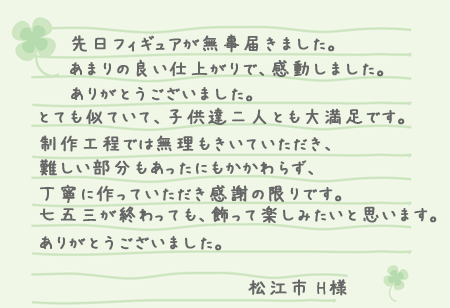 先日フィギュアが無事届きました。
あまりの良い仕上がりで、感動しました。
ありがとうございました。
とても似ていて、子供達二人とも大満足です。
制作工程では無理もきいていただき、
難しい部分もあったにもかかわらず、
丁寧に作っていただき感謝の限りです。
七五三が終わっても、飾って楽しみたいと思います。
ありがとうございました。
松江市 H様